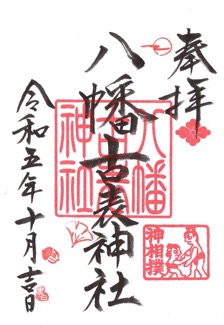 奉拝
八幡古表神社
八幡
神社
神相撲
令和五年十月吉日